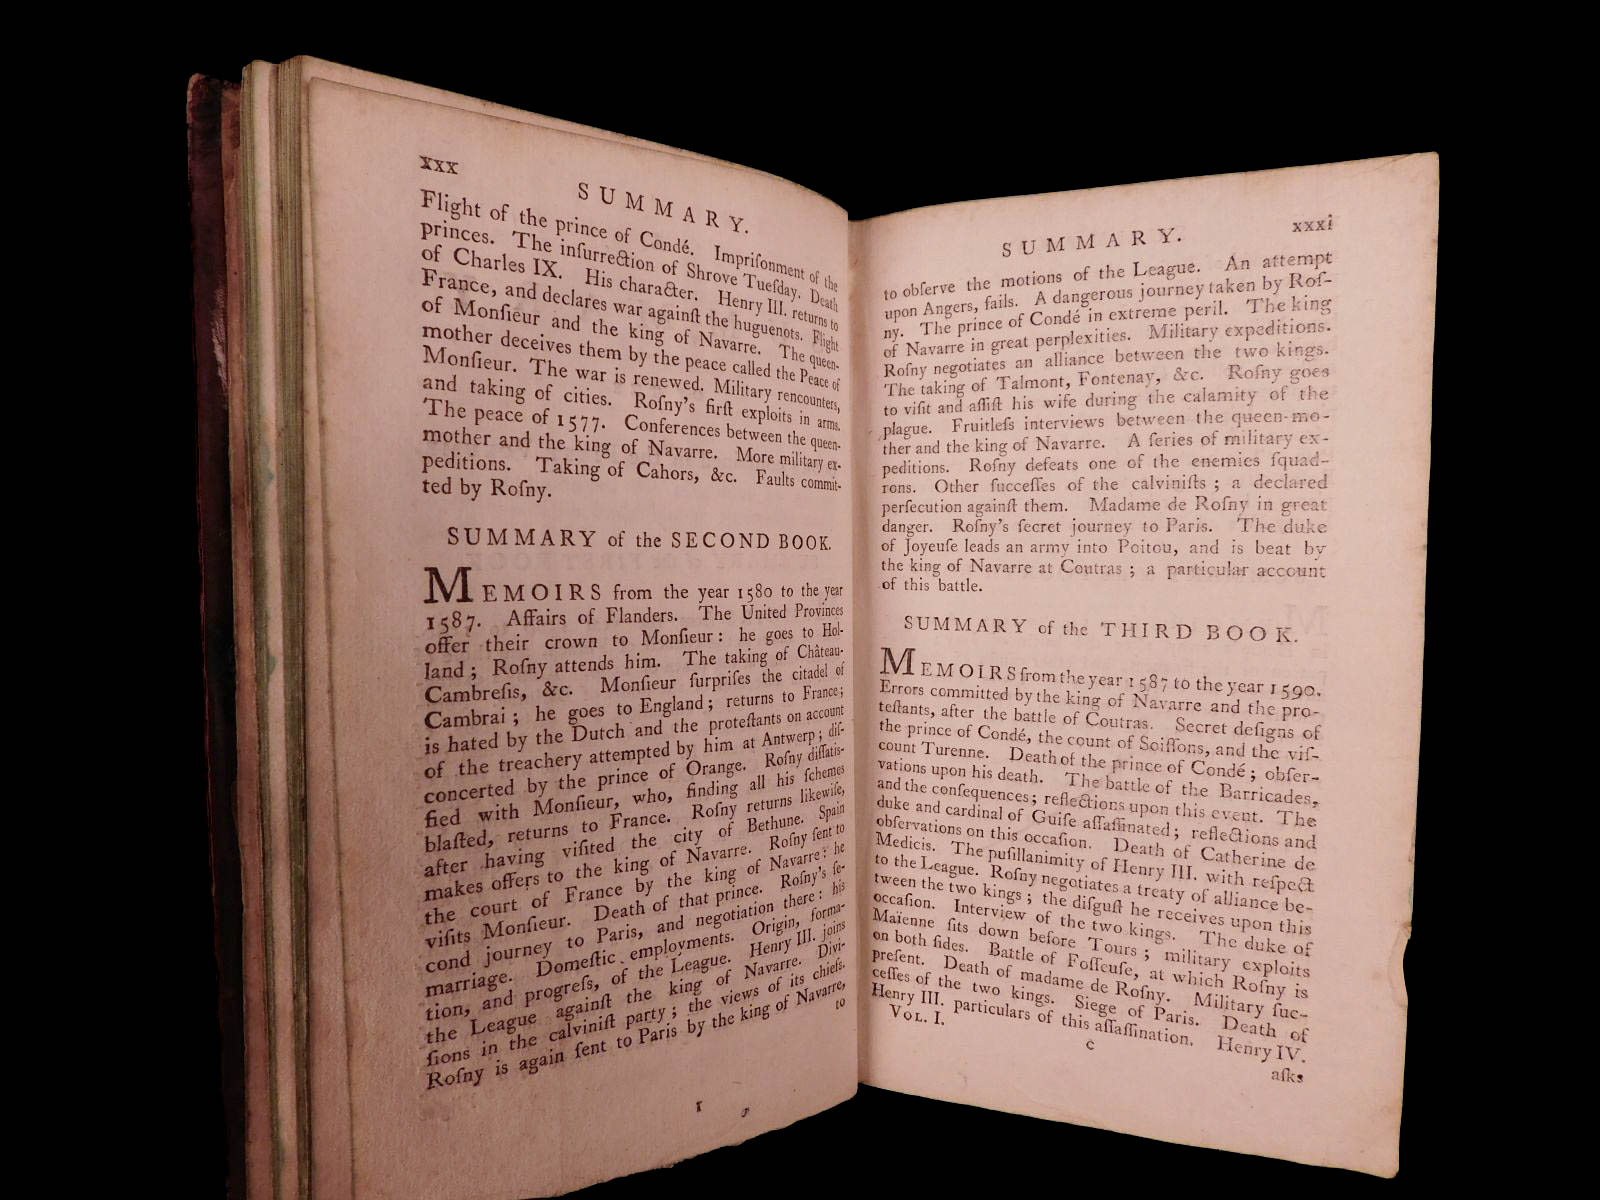 xxx
SUMMARY.
Flight of the prince of Condé. Impriſonment of the
princes. The inſurrection of Shrove Tueſday. Death
of Charles IX. His character. Henry III. returns to
France, and declares war againſt the huguenots. Flight
of Monſieur and the king of Navarre. The queen-
mother deceives them by the peace called the Peace of
Monſieur. The war is renewed. Military rencounters,
and taking of cities. Roſny's firſt exploits in arms.
The peace of 1577. Conferences between the queen-
mother and the king of Navarre. More military ex-
peditions. Taking of Cahors, &c. Faults commit-
ted by Roſny.
SUMMARY of the SECOND BOOK.
MEMOIRS from the year 1580 to the year
1587. Affairs of Flanders. The United Provinces
offer their crown to Monſieur: he goes to Hol-
land; Roſny attends him. The taking of Château-
Cambreſis, &c. Monſieur ſurpriſes the citadel of
Cambrai; he goes to England; returns to France;
is hated by the Dutch and the proteſtants on account
of the treachery attempted by him at Antwerp; diſ-
concerted by the prince of Orange. Roſny diſſatis-
fied with Monſieur, who, finding all his ſchemes
blaſted, returns to France. Roſny returns likewiſe,
after having viſited the city of Bethune. Spain
makes offers to the king of Navarre. Roſny ſent to
the court of France by the king of Navarre: he
viſits Monſieur. Death of that prince. Roſny's ſe-
cond journey to Paris, and negotiation there: his
marriage. Domeſtic employments. Origin, forma-
tion, and progreſs, of the League. Henry III. joins
the League againſt the king of Navarre. Divi-
ſions in the calviniſt party; the views of its chiefs.
Roſny is again ſent to Paris by the king of Navarre,
to
SUMMARY.
xxxi
to obſerve the motions of the League. An attempt
upon Angers, fails. A dangerous journey taken by Roſ-
ny. The prince of Condé in extreme peril. The king
of Navarre in great perplexities. Military expeditions.
Roſny negotiates an alliance between the two kings.
The taking of Talmont, Fontenay, &c. Roſny goes
to viſit and aſſiſt his wife during the calamity of the
plague. Fruitleſs interviews between the queen-mo-
ther and the king of Navarre. A ſeries of military ex-
peditions. Roſny defeats one of the enemies ſquad-
rons. Other ſucceſſes of the calviniſts; a declared
perſecution againſt them. Madame de Roſny in great
danger. Roſny's ſecret journey to Paris. The duke
of Joyeuſe leads an army into Poitou, and is beat by
the king of Navarre at Coutras; a particular account
of this battle.
SUMMARY of the THIRD BOOK.
MEMOIRS from the year 1587 to the year 1590.
Errors committed by the king of Navarre and the pro-
teſtants, after the battle of Coutras. Secret deſigns of
the prince of Condé, the count of Soiſſons, and the viſ-
count Turenne. Death of the prince of Condé; obſer-
vations upon his death. The battle of the Barricades,
and the conſequences; reflections upon this event. The
duke and cardinal of Guiſe aſſaſſinated; reflections and
obſervations on this occaſion. Death of Catherine de
Medicis. The puſillanimity of Henry III. with reſpect
to the League. Roſny negotiates a treaty of alliance be-
tween the two kings; the diſguſt he receives upon this
occaſion. Interview of the two kings. The duke of
Maïenne ſits down before Tours; military exploits
on both ſides. Battle of Foſſeuſe, at which Roſny is
preſent. Death of madame de Roſny. Military ſuc-
ceſſes of the two kings. Siege of Paris. Death of
Henry III. particulars of this aſſaſſination. Henry IV.
VOL. I.
c
aſks